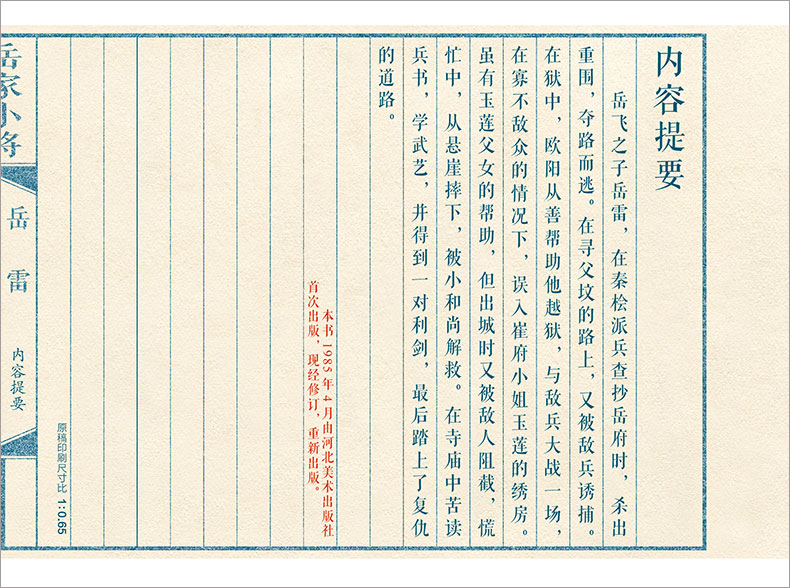 内容提要
岳飞之子岳雷，在秦桧派兵查抄岳府时，杀出
重围，夺路而逃。在寻父坟的路上，又被敌兵诱捕。
在狱中，欧阳从善帮助他越狱，与敌兵大战一场，
在寡不敌众的情况下，误入崔府小姐玉莲的绣房。
虽有玉莲父女的帮助，但出城时又被敌人阻截，慌
忙中，从悬崖摔下，被小和尚解救。在寺庙中苦读
兵书，学武艺，并得到一对利剑，最后踏上了复仇
的道路。
本书1985年4月由河北美术出版社
首次出版，现经修订，重新出版。
岳家小将
岳雷
内容提要
原稿印刷尺寸比 1:0.65